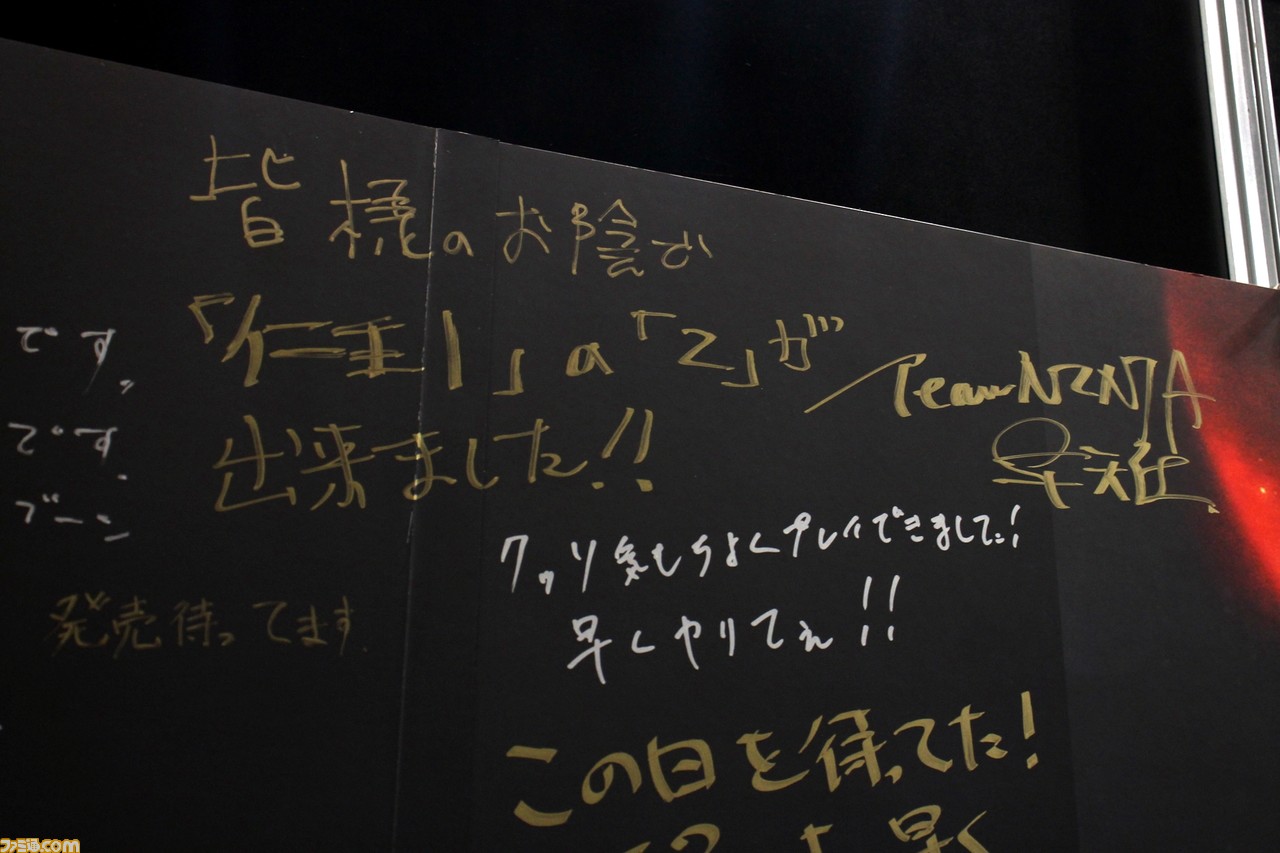 皆様のお陰で
「仁王1」の「2」が
出来ました!!
Team NINJA
です。
です.
ブーン
発売待ってます
プレイできました!
早くやりてぇ!!
この日を待ってた!
早く
ファミ通.com